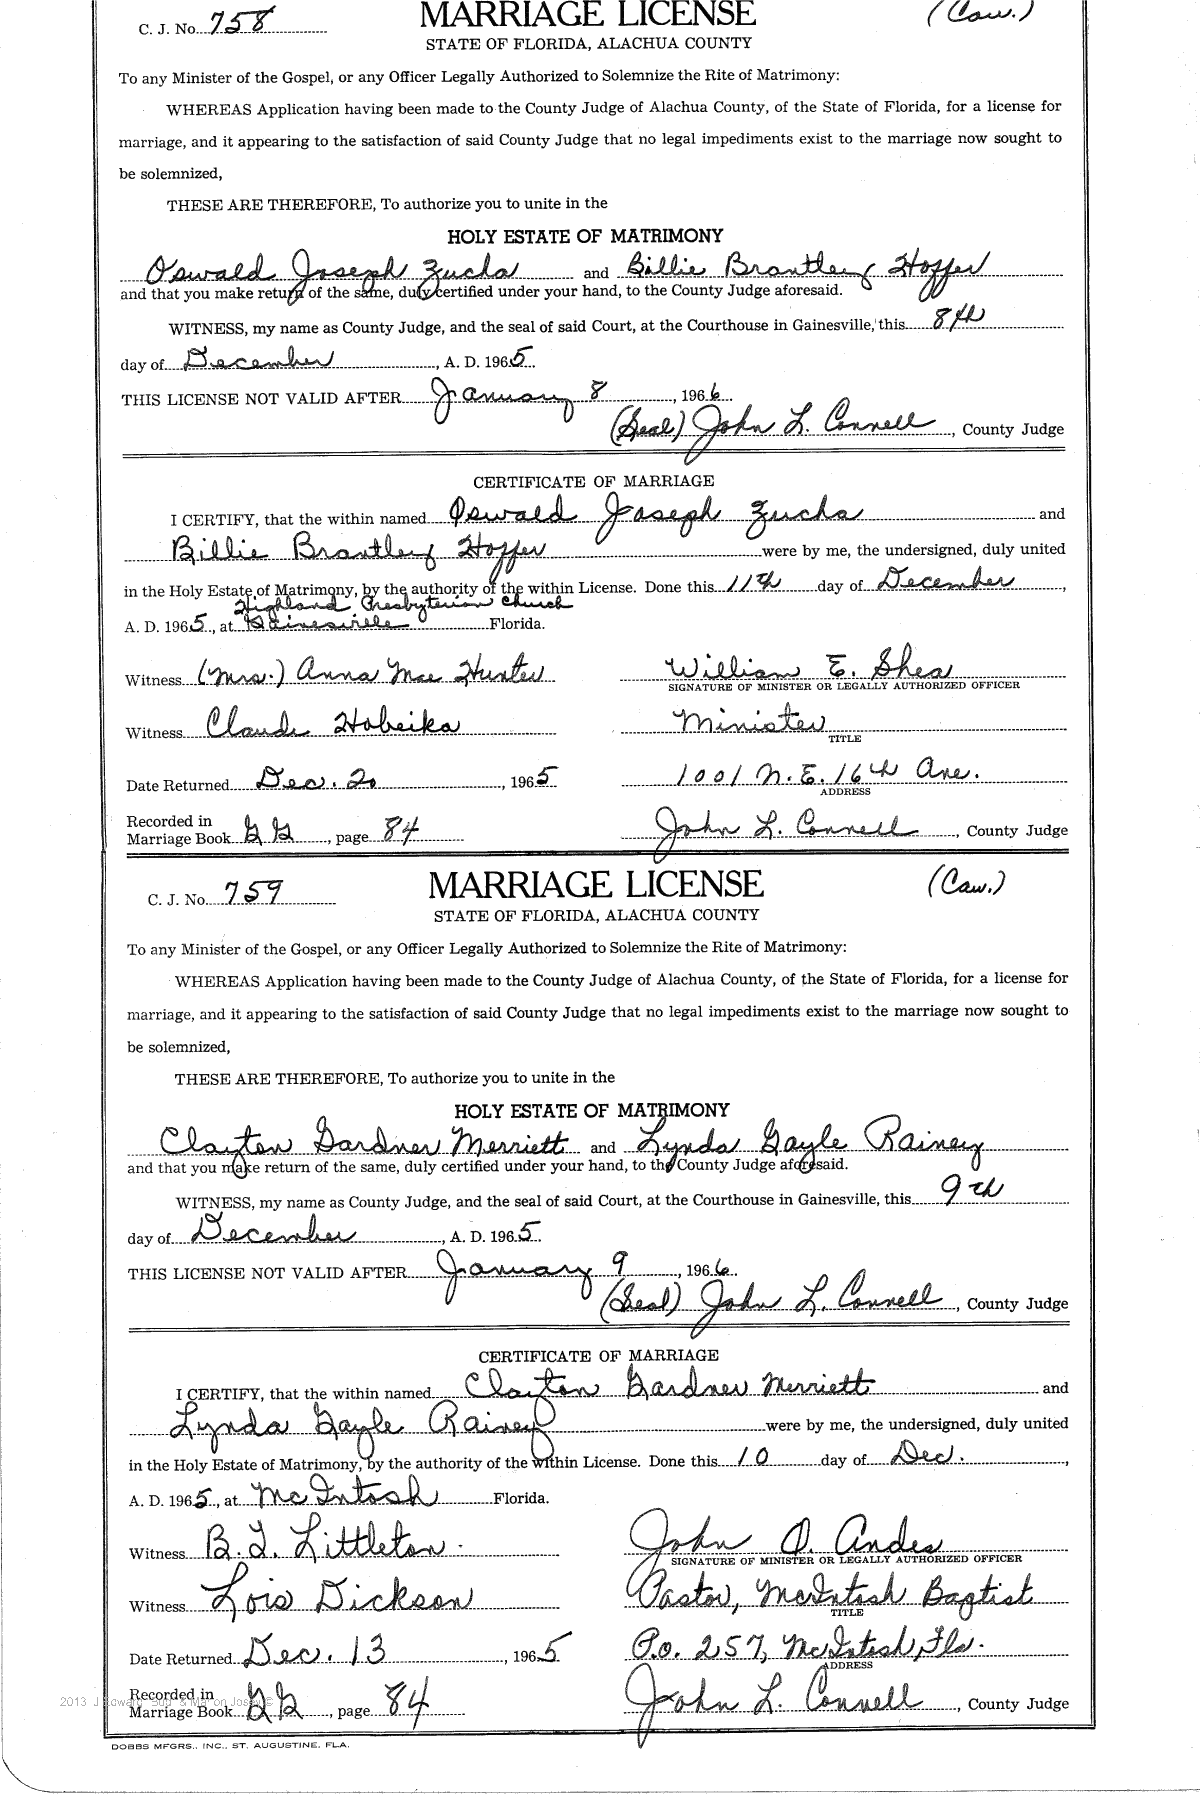 C. J. No. 758 MARRIAGE LICENSE (Caw.)
STATE OF FLORIDA, ALACHUA COUNTY
To any Minister of the Gospel, or any Officer Legally Authorized to Solemnize the Rite of Matrimony:
WHEREAS Application having been made to the County Judge of Alachua County, of the State of Florida, for a license for
marriage, and it appearing to the satisfaction of said County Judge that no legal impediments exist to the marriage now sought to
be solemnized,
THESE ARE THEREFORE, To authorize you to unite in the
HOLY ESTATE OF MATRIMONY
Oswald Joseph Zucha and Billie Brantley Hoffer
and that you make return of the same, duly certified under your hand, to the County Judge aforesaid.
WITNESS, my name as County Judge, and the seal of said Court, at the Courthouse in Gainesville, this 8th
day of December, A. D. 1965.
THIS LICENSE NOT VALID AFTER January 8, 1966
(Seal) John L. Connell, County Judge
CERTIFICATE OF MARRIAGE
I CERTIFY, that the within named Oswald Joseph Zucha and
Billie Brantley Hoffer were by me, the undersigned, duly united
in the Holy Estate of Matrimony, by the authority of the within License. Done this 11th day of December,
Highland Presbyterian Church
A. D. 1965, at Gainesville Florida.
Witness (Mrs.) Anna Mae Hunter William E. Shea
SIGNATURE OF MINISTER OR LEGALLY AUTHORIZED OFFICER
Witness Claude Hobeika Minister
TITLE
Date Returned Dec. 20, 1965 1001 N.E. 16th Ave.
ADDRESS
Recorded in
Marriage Book GG, page 84 John L. Connell, County Judge
C. J. No. 759 MARRIAGE LICENSE (Caw.)
STATE OF FLORIDA, ALACHUA COUNTY
To any Minister of the Gospel, or any Officer Legally Authorized to Solemnize the Rite of Matrimony:
WHEREAS Application having been made to the County Judge of Alachua County, of the State of Florida, for a license for
marriage, and it appearing to the satisfaction of said County Judge that no legal impediments exist to the marriage now sought to
be solemnized,
THESE ARE THEREFORE, To authorize you to unite in the
HOLY ESTATE OF MATRIMONY
Clayton Gardner Merriett and Lynda Gayle Rainey
and that you make return of the same, duly certified under your hand, to the County Judge aforesaid.
WITNESS, my name as County Judge, and the seal of said Court, at the Courthouse in Gainesville, this 9th
day of December, A. D. 1965.
THIS LICENSE NOT VALID AFTER January 9, 1966.
(Seal) John L. Connell, County Judge
CERTIFICATE OF MARRIAGE
I CERTIFY, that the within named Clayton Gardner Merriett and
Lynda Gayle Rainey were by me, the undersigned, duly united
in the Holy Estate of Matrimony, by the authority of the within License. Done this 10 day of Dec.,
A. D. 1965, at McIntosh Florida.
Witness B. T. Littleton John O. Andes
SIGNATURE OF MINISTER OR LEGALLY AUTHORIZED OFFICER
Witness Lois Dickson Pastor, McIntosh Baptist
TITLE
Date Returned Dec. 13, 1965 P.O. 257, McIntosh, Fla.
ADDRESS
Recorded in
Marriage Book GG, page 84 John L. Connell, County Judge
DOBBS MFGRS., INC., ST. AUGUSTINE, FLA.